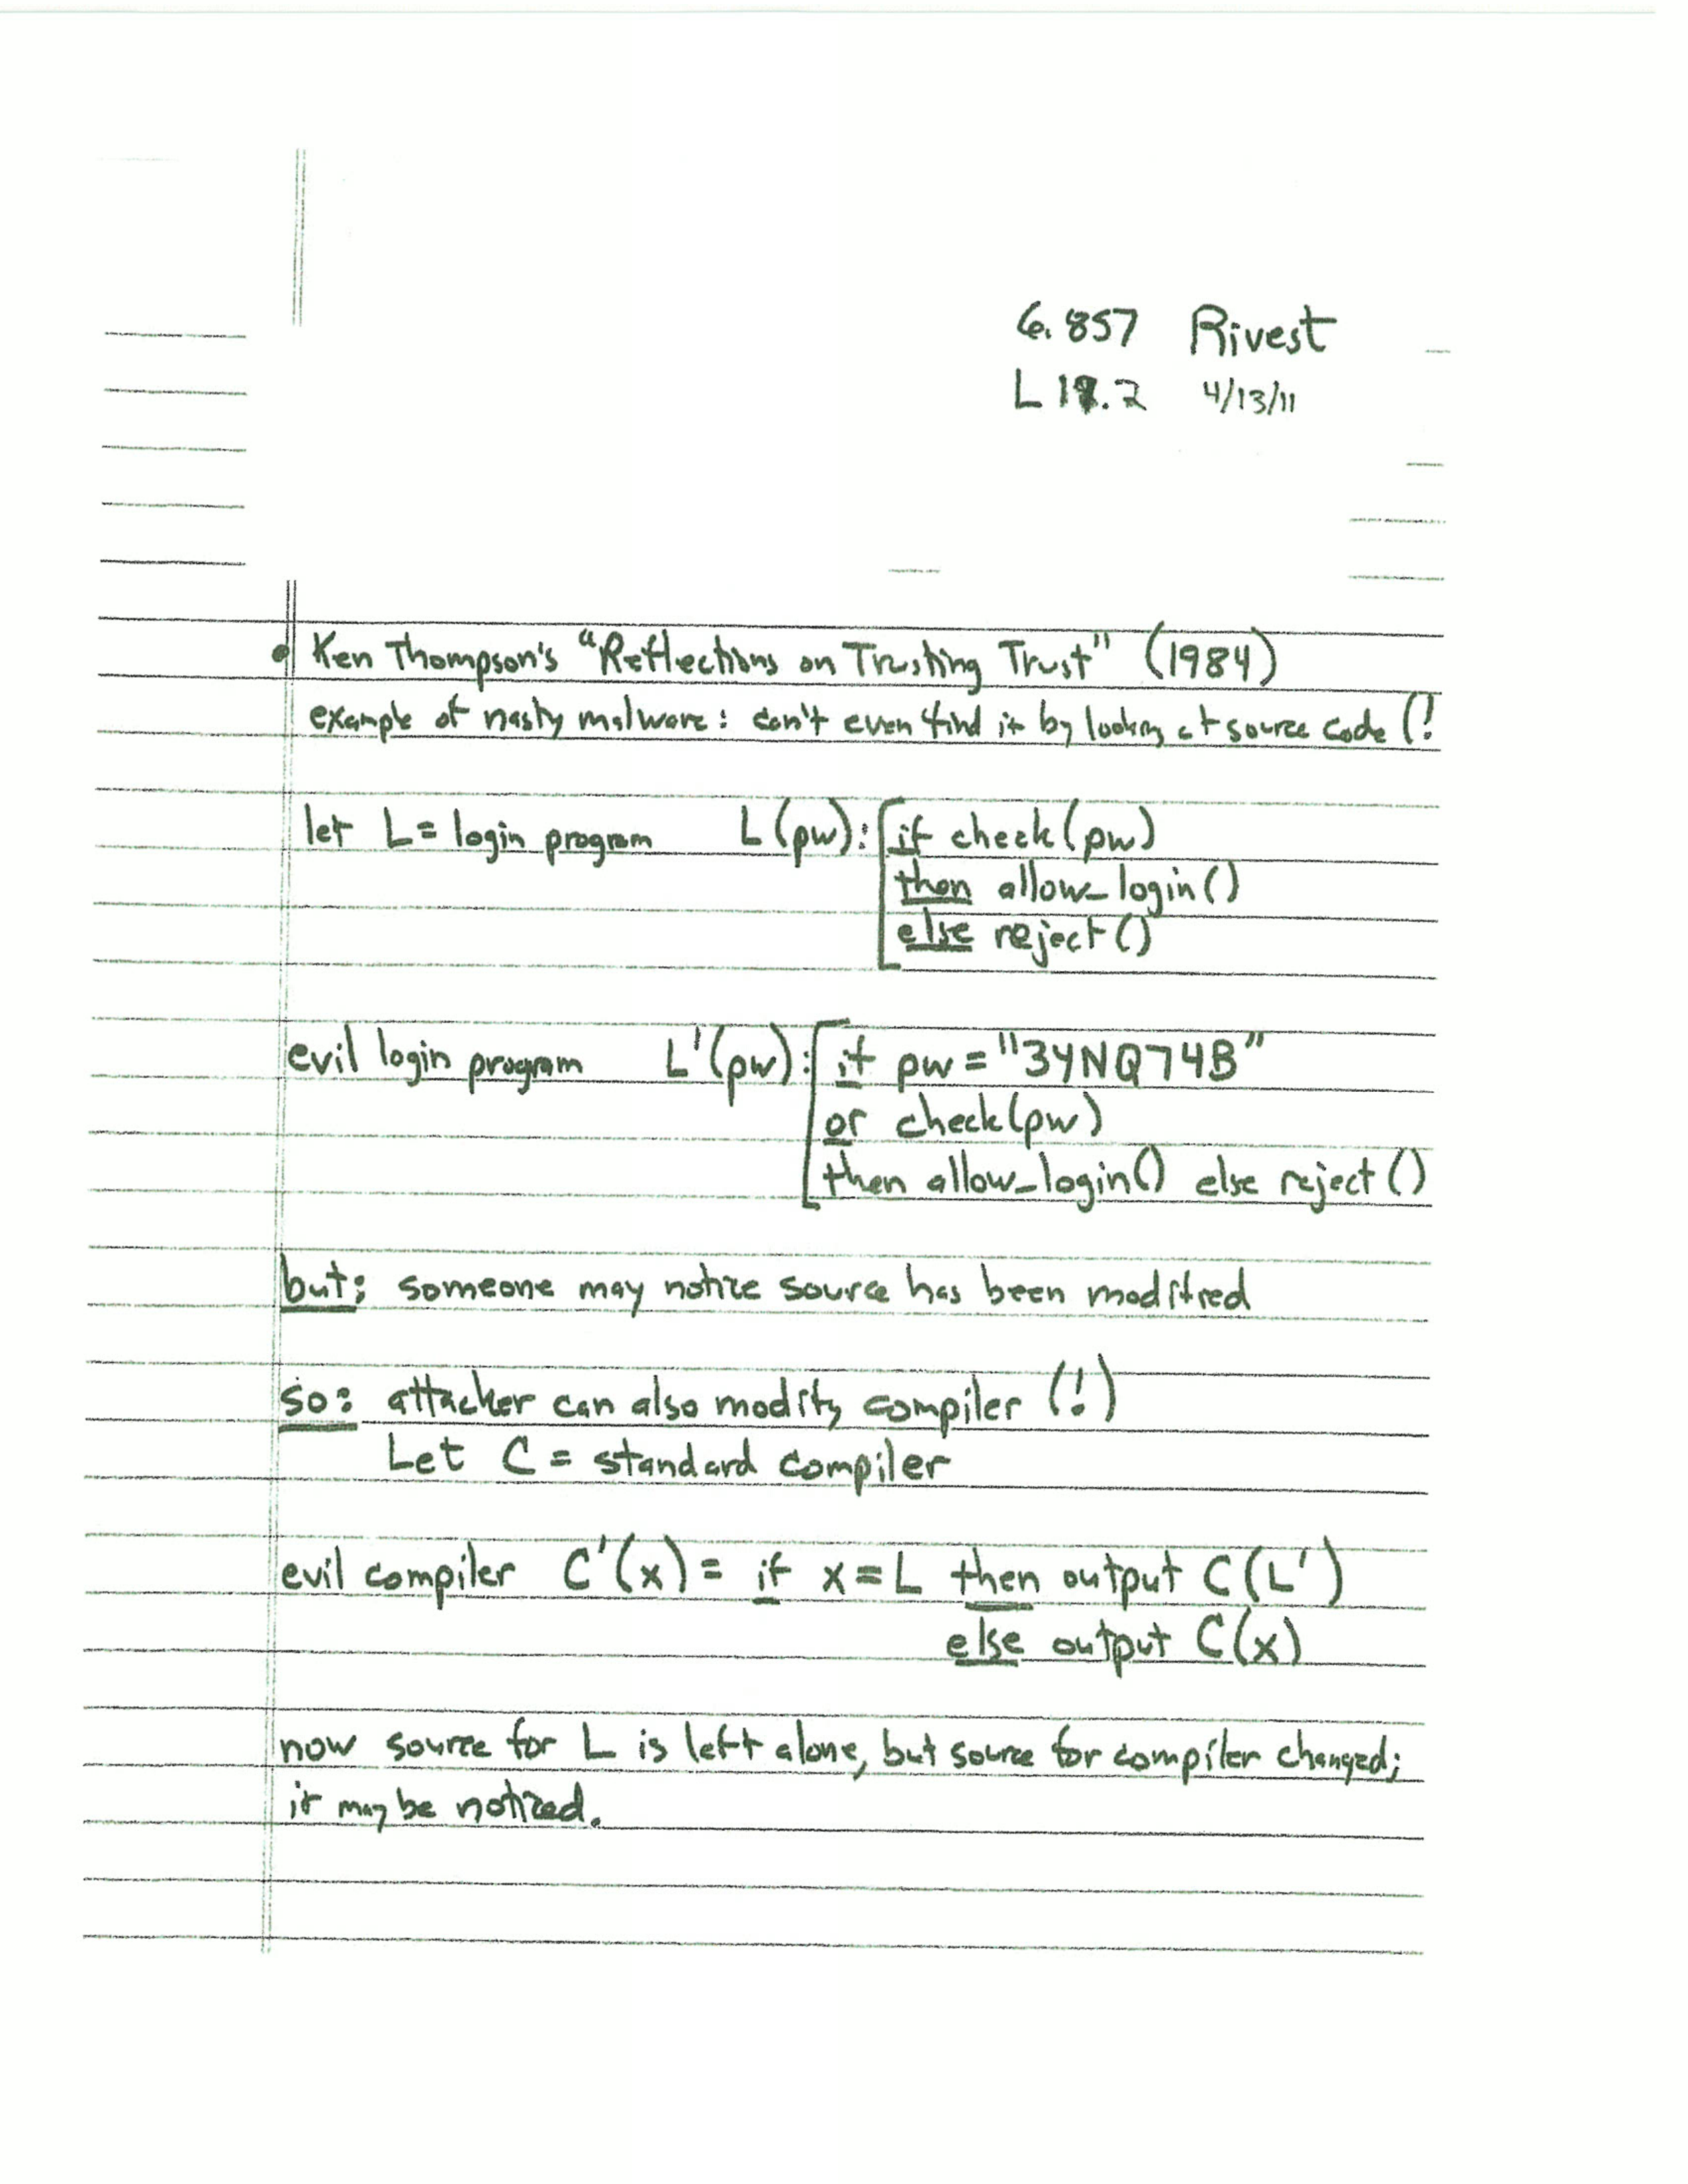 6.857 Rivest
L 4/13/11
• Ken Thompson's "Reflections on Trusting Trust" (1984)
example of nasty malware: can't even find it by looking at source code (!
let L = login program L(pw): if check(pw)
then allow_login()
else reject()
evil login program L'(pw): if pw = "3YNQ74B"
or check(pw)
then allow_login() else reject()
but: someone may notice source has been modified
so: attacker can also modify compiler (!)
Let C = standard compiler
evil compiler C'(x) = if x = L then output C(L')
else output C(x)
now source for L is left alone, but source for compiler changed;
it may be noticed.